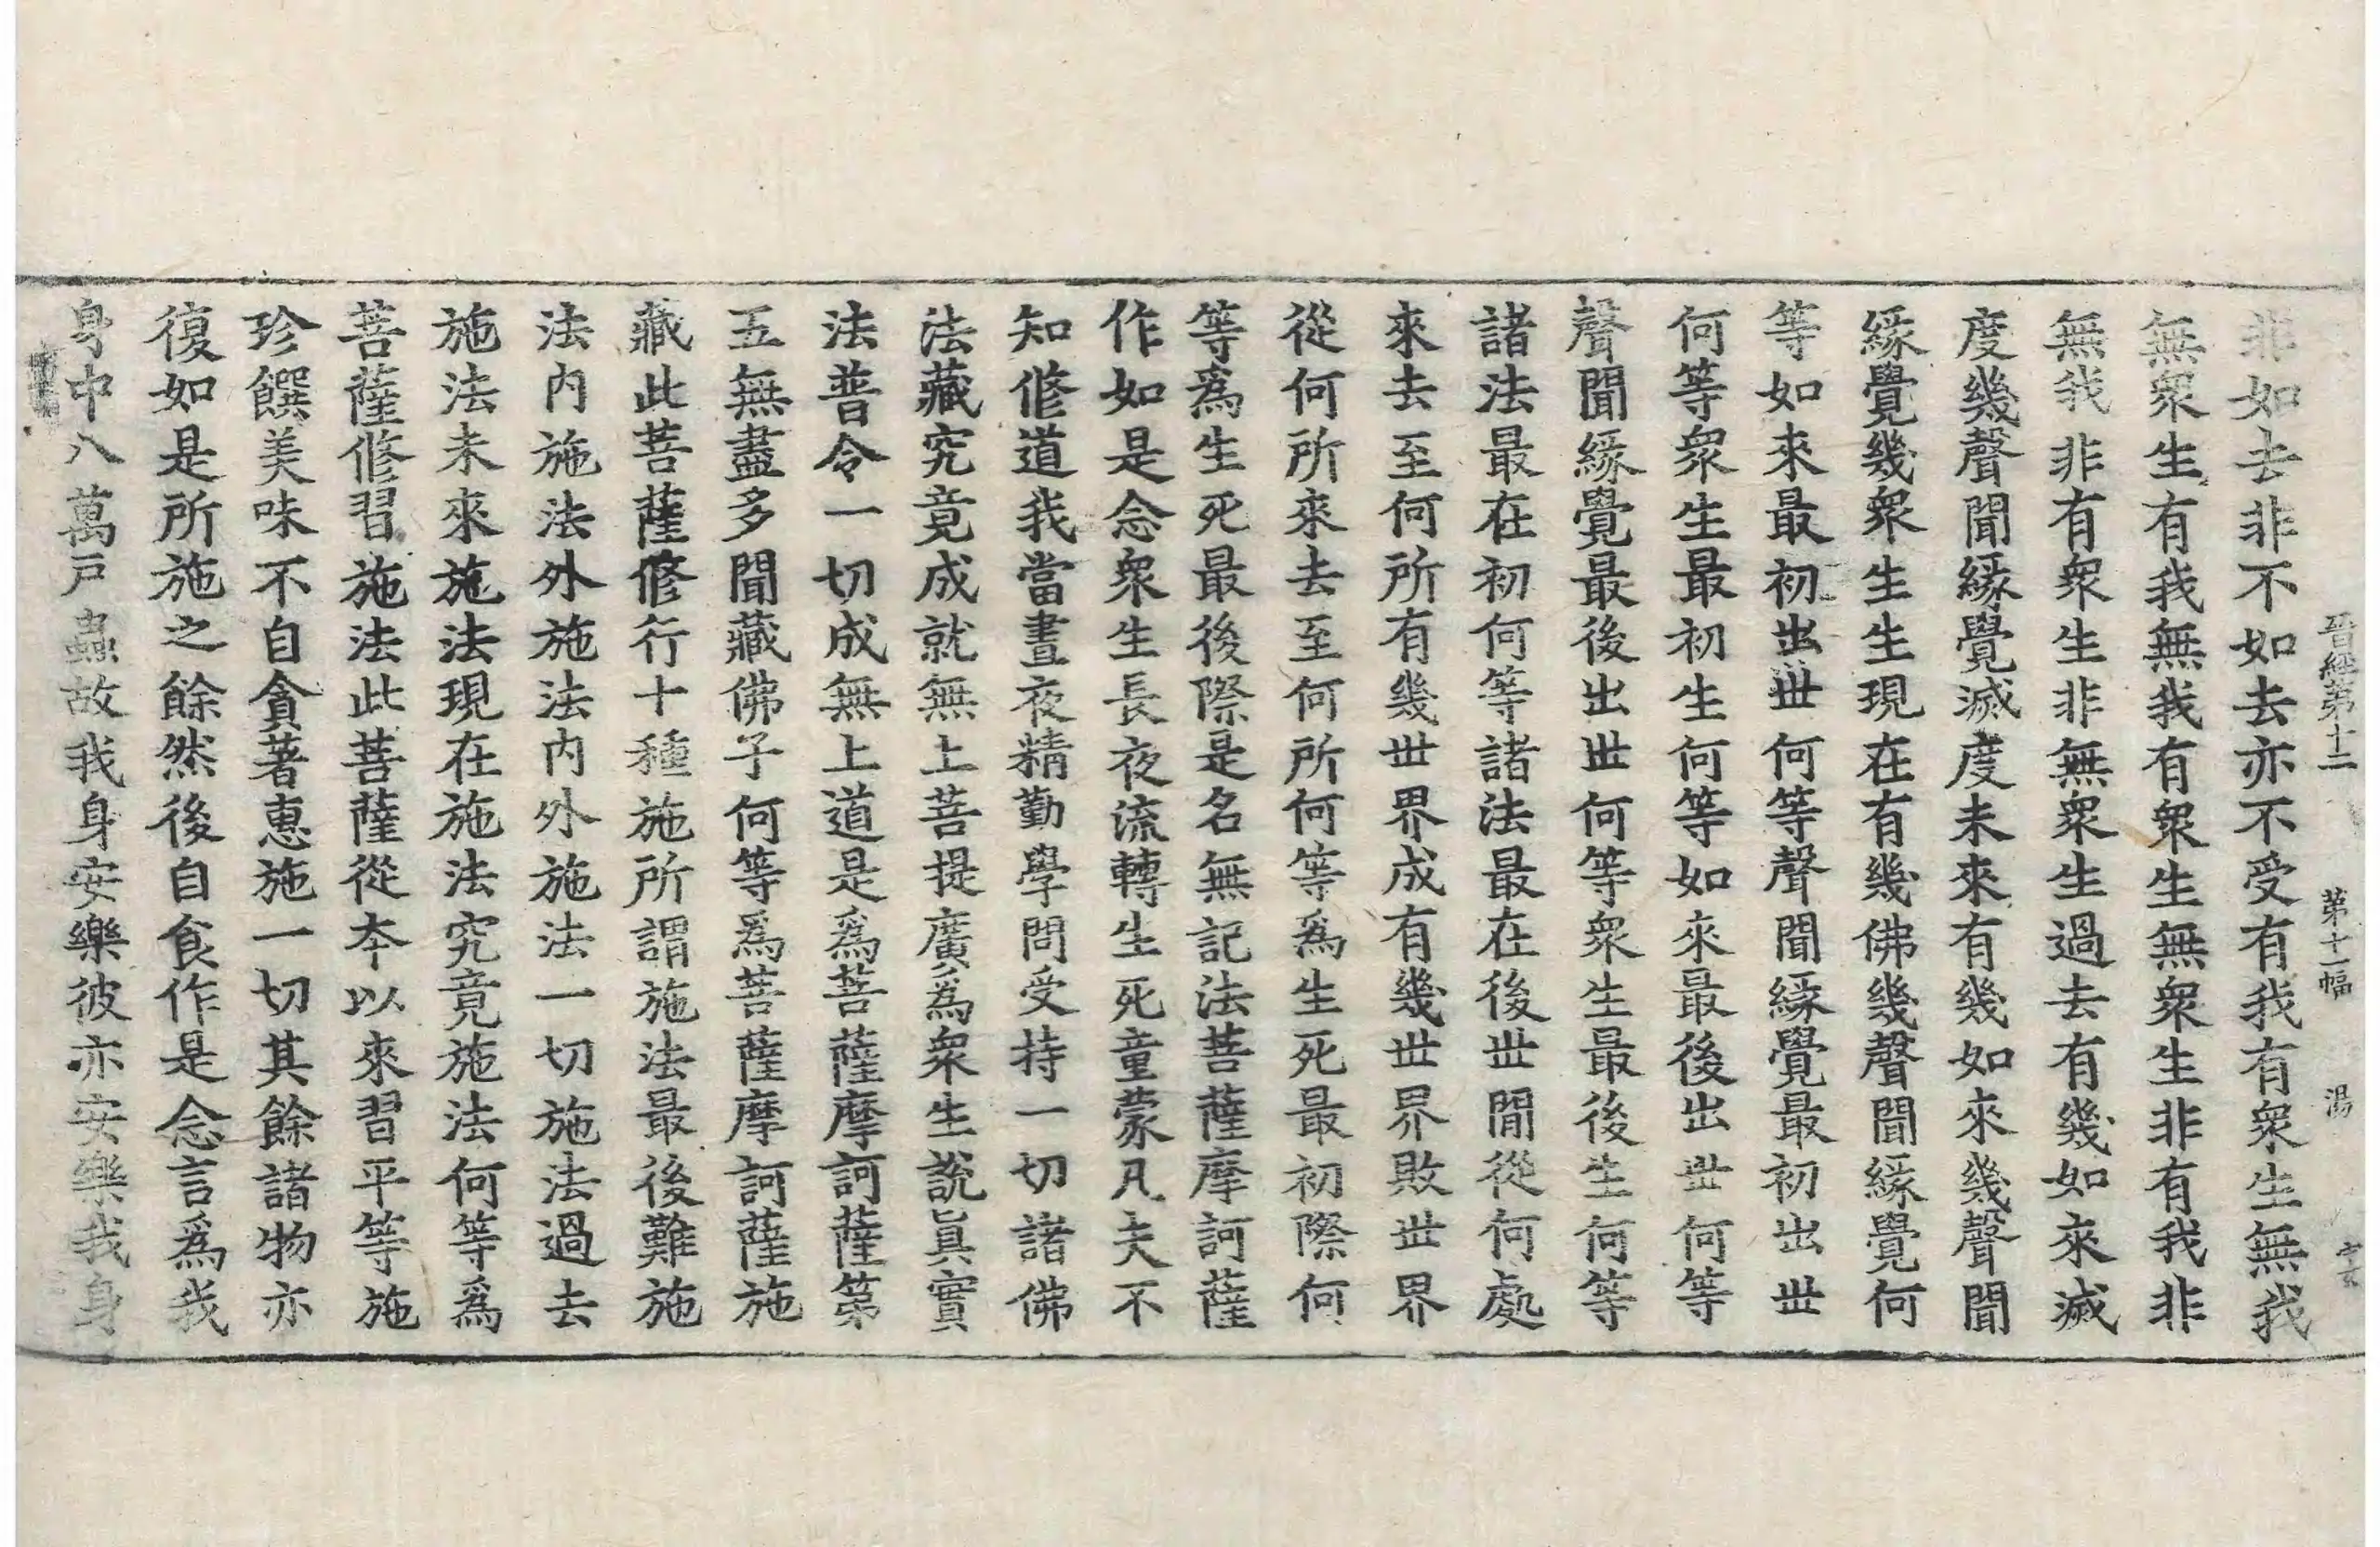 晉經第十二 第十一幅 湯
非如去非不如去亦不受有我有衆生無我
無衆生有我無我有衆生無衆生非有我非
無我非有衆生非無衆生過去有幾如來滅
度幾聲聞緣覺滅度未來有幾如來幾聲聞
緣覺幾衆生生現在有幾佛幾聲聞緣覺何
等如來最初出世何等聲聞緣覺最初出世
何等衆生最初生何等如來最後出世何等
聲聞緣覺最後出世何等衆生最後生何等
諸法最在初何等諸法最在後世間從何處
來去至何所有幾世界成有幾世界敗世界
從何所來去至何所何等爲生死最初際何
等爲生死最後際是名無記法菩薩摩訶薩
作如是念衆生長夜流轉生死童蒙凡夫不
知修道我當晝夜精勤學問受持一切諸佛
法藏究竟成就無上菩提廣爲衆生說眞實
法普令一切成無上道是爲菩薩摩訶薩第
五無盡多聞藏佛子何等爲菩薩摩訶薩施
藏此菩薩修行十種施所謂施法最後難施
法內施法外施法內外施法一切施法過去
施法未來施法現在施法究竟施法何等爲
菩薩修習施法此菩薩從本以來習平等施
珍饌美味不自貪著惠施一切其餘諸物亦
復如是所施之餘然後自食作是念言爲我
身中八萬戶蟲故我身安樂彼亦安樂我身